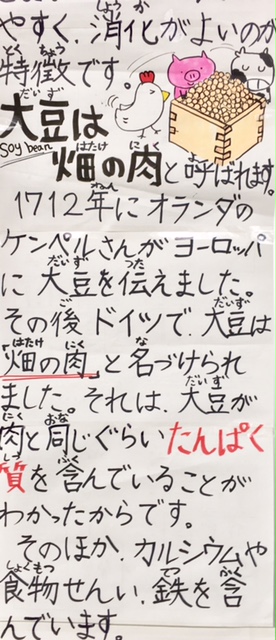 やすく、消化がよいのが
特徴です
大豆は
soy bean
畑の肉と呼ばれます。
1712年にオランダの
ケンペルさんがヨーロッパ
に大豆を伝えました。
その後ドイツで、大豆は
「畑の肉」と名づけられ
ました。それは、大豆が
肉と同じぐらいたんぱく
質を含んでいることが
わかったからです。
そのほか、カルシウムや
食物せんい、鉄を含
んでいます。